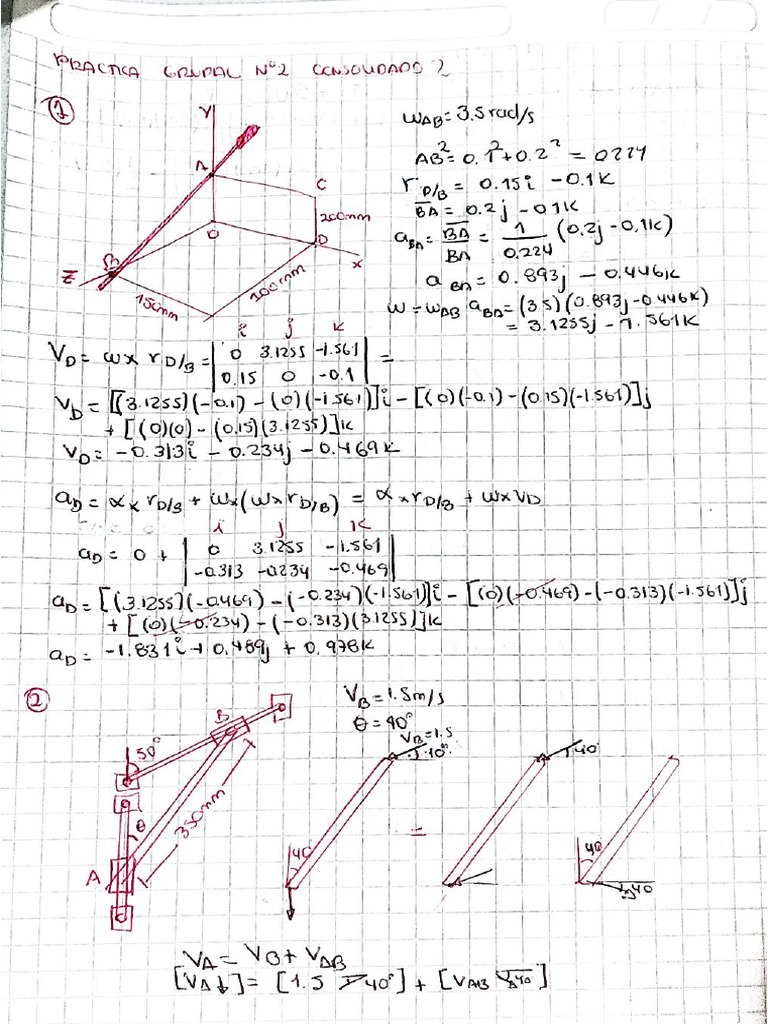 PRACTICA GRUPAL N°2 CONSOLIDADO 2
1
Y
A
C
200mm
O
D
B
X
Z
150mm
100mm
ω_AB = 3.5 rad/s
AB² = 0.1² + 0.2² = 0224
r_D/B = 0.15i - 0.1k
BA = 0.2j - 0.1k
a_BA = BA/BA = 1/0.224 (0.2j - 0.1k)
a_BA = 0.893j - 0.446k
ω = ω_AB a_BA = (3.5)(0.893j - 0.446k)
= 3.1255j - 1.561k
i j k
V_D = ω x r_D/B = | 0 3.1255 -1.561 | =
| 0.15 0 -0.1 |
V_D = [(3.1255)(-0.1) - (0)(-1.561)]i - [(0)(-0.1) - (0.15)(-1.561)]j
+ [(0)(0) - (0.15)(3.1255)]k
V_D = -0.313i - 0.234j - 0.469k
a_D = α x r_D/B + ω x (ω x r_D/B) = α x r_D/B + ω x V_D
i j k
a_D = 0 + | 0 3.1255 -1.561 |
| -0.313 -0.234 -0.469 |
a_D = [(3.1255)(-0.469) - (-0.234)(-1.561)]i - [(0)(-0.469) - (-0.313)(-1.561)]j
+ [(0)(-0.234) - (-0.313)(3.1255)]k
a_D = -1.831i + 0.489j + 0.978k
2
B
50°
θ
350mm
A
V_B = 1.5m/s
θ = 40°
V_B = 1.5
10°
40
=
40
40
40
V_A = V_B + V_AB
[V_A ↓] = [1.5 40°] + [V_AB 40]